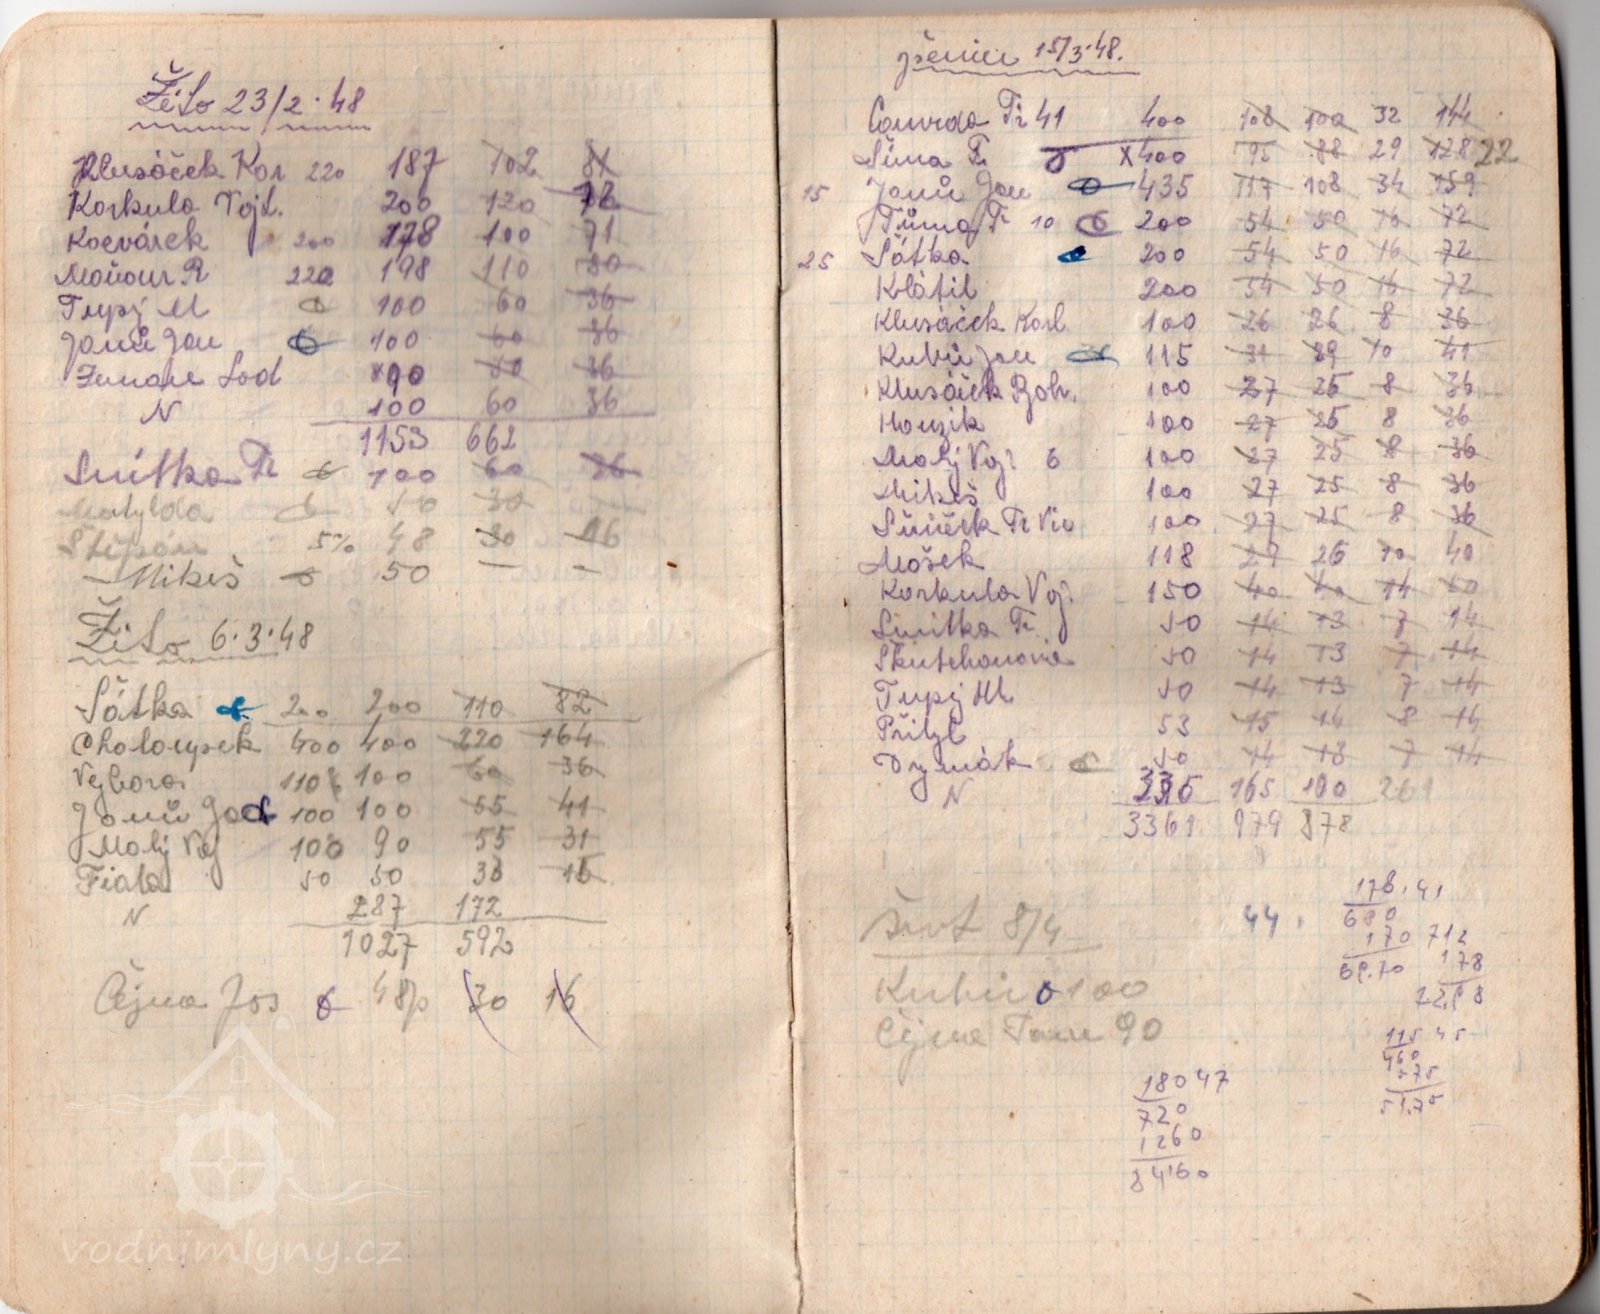 Žito 23/2·48
Klusáček Kar 220 187 102 81
Korkula Vojt. 200 120 72
Kocvárek 200 178 100 71
Maňour R 220 198 110 80
Tupý M 100 60 36
Janů Jan 100 60 36
Lod x90 80 36
N 100 60 36
1153 662
Snítka Fr 100 60 36
Matylda 50 30
Štěpán 5% 48 30 16
Mikeš 50 — –
Žito 6·3·48
Šátka 200 200 110 82
Choloupek 400 400 220 164
Vejbora 110 100 60 36
Janů Jan 100 100 55 41
Malý Voj 100 90 55 31
Fiala 50 50 30 16
N 287 172
1027 592
Čejna Jos 48% 30 16
pšenice 15/3·48.
Fr 41 400 108 100 32 144
Šíma Fr x400 95 88 29 128 22
15 Janů Jan 435 117 108 34 159
Tůma Fr 10 200 54 50 16 72
25 Šátka 200 54 50 16 72
Klátil 200 54 50 16 72
Klusáček Karl 100 26 26 8 36
Kubů Jan 115 31 29 10 41
Klusáček Boh. 100 27 25 8 36
Houzik 100 27 25 8 36
Malý Voj 100 27 25 8 36
Mikeš 100 27 25 8 36
Fr 100 27 25 8 36
Mašek 118 27 26 10 40
Korkula Voj. 150 40 40 14 50
Snítka Fr. 50 14 13 7 14
50 14 13 7 14
Tupý M 50 14 13 7 14
Přibyl 53 15 14 8 14
Drmák 50 14 13 7 14
N 165 100 261
3361 979 878
Šrot 8/4 44
Kubů 100
Čejna 90
178·41
680
170 712
69.70 178
115 45
460
575
51.75
180 47
720
1260
8460
vodnimlyny.cz